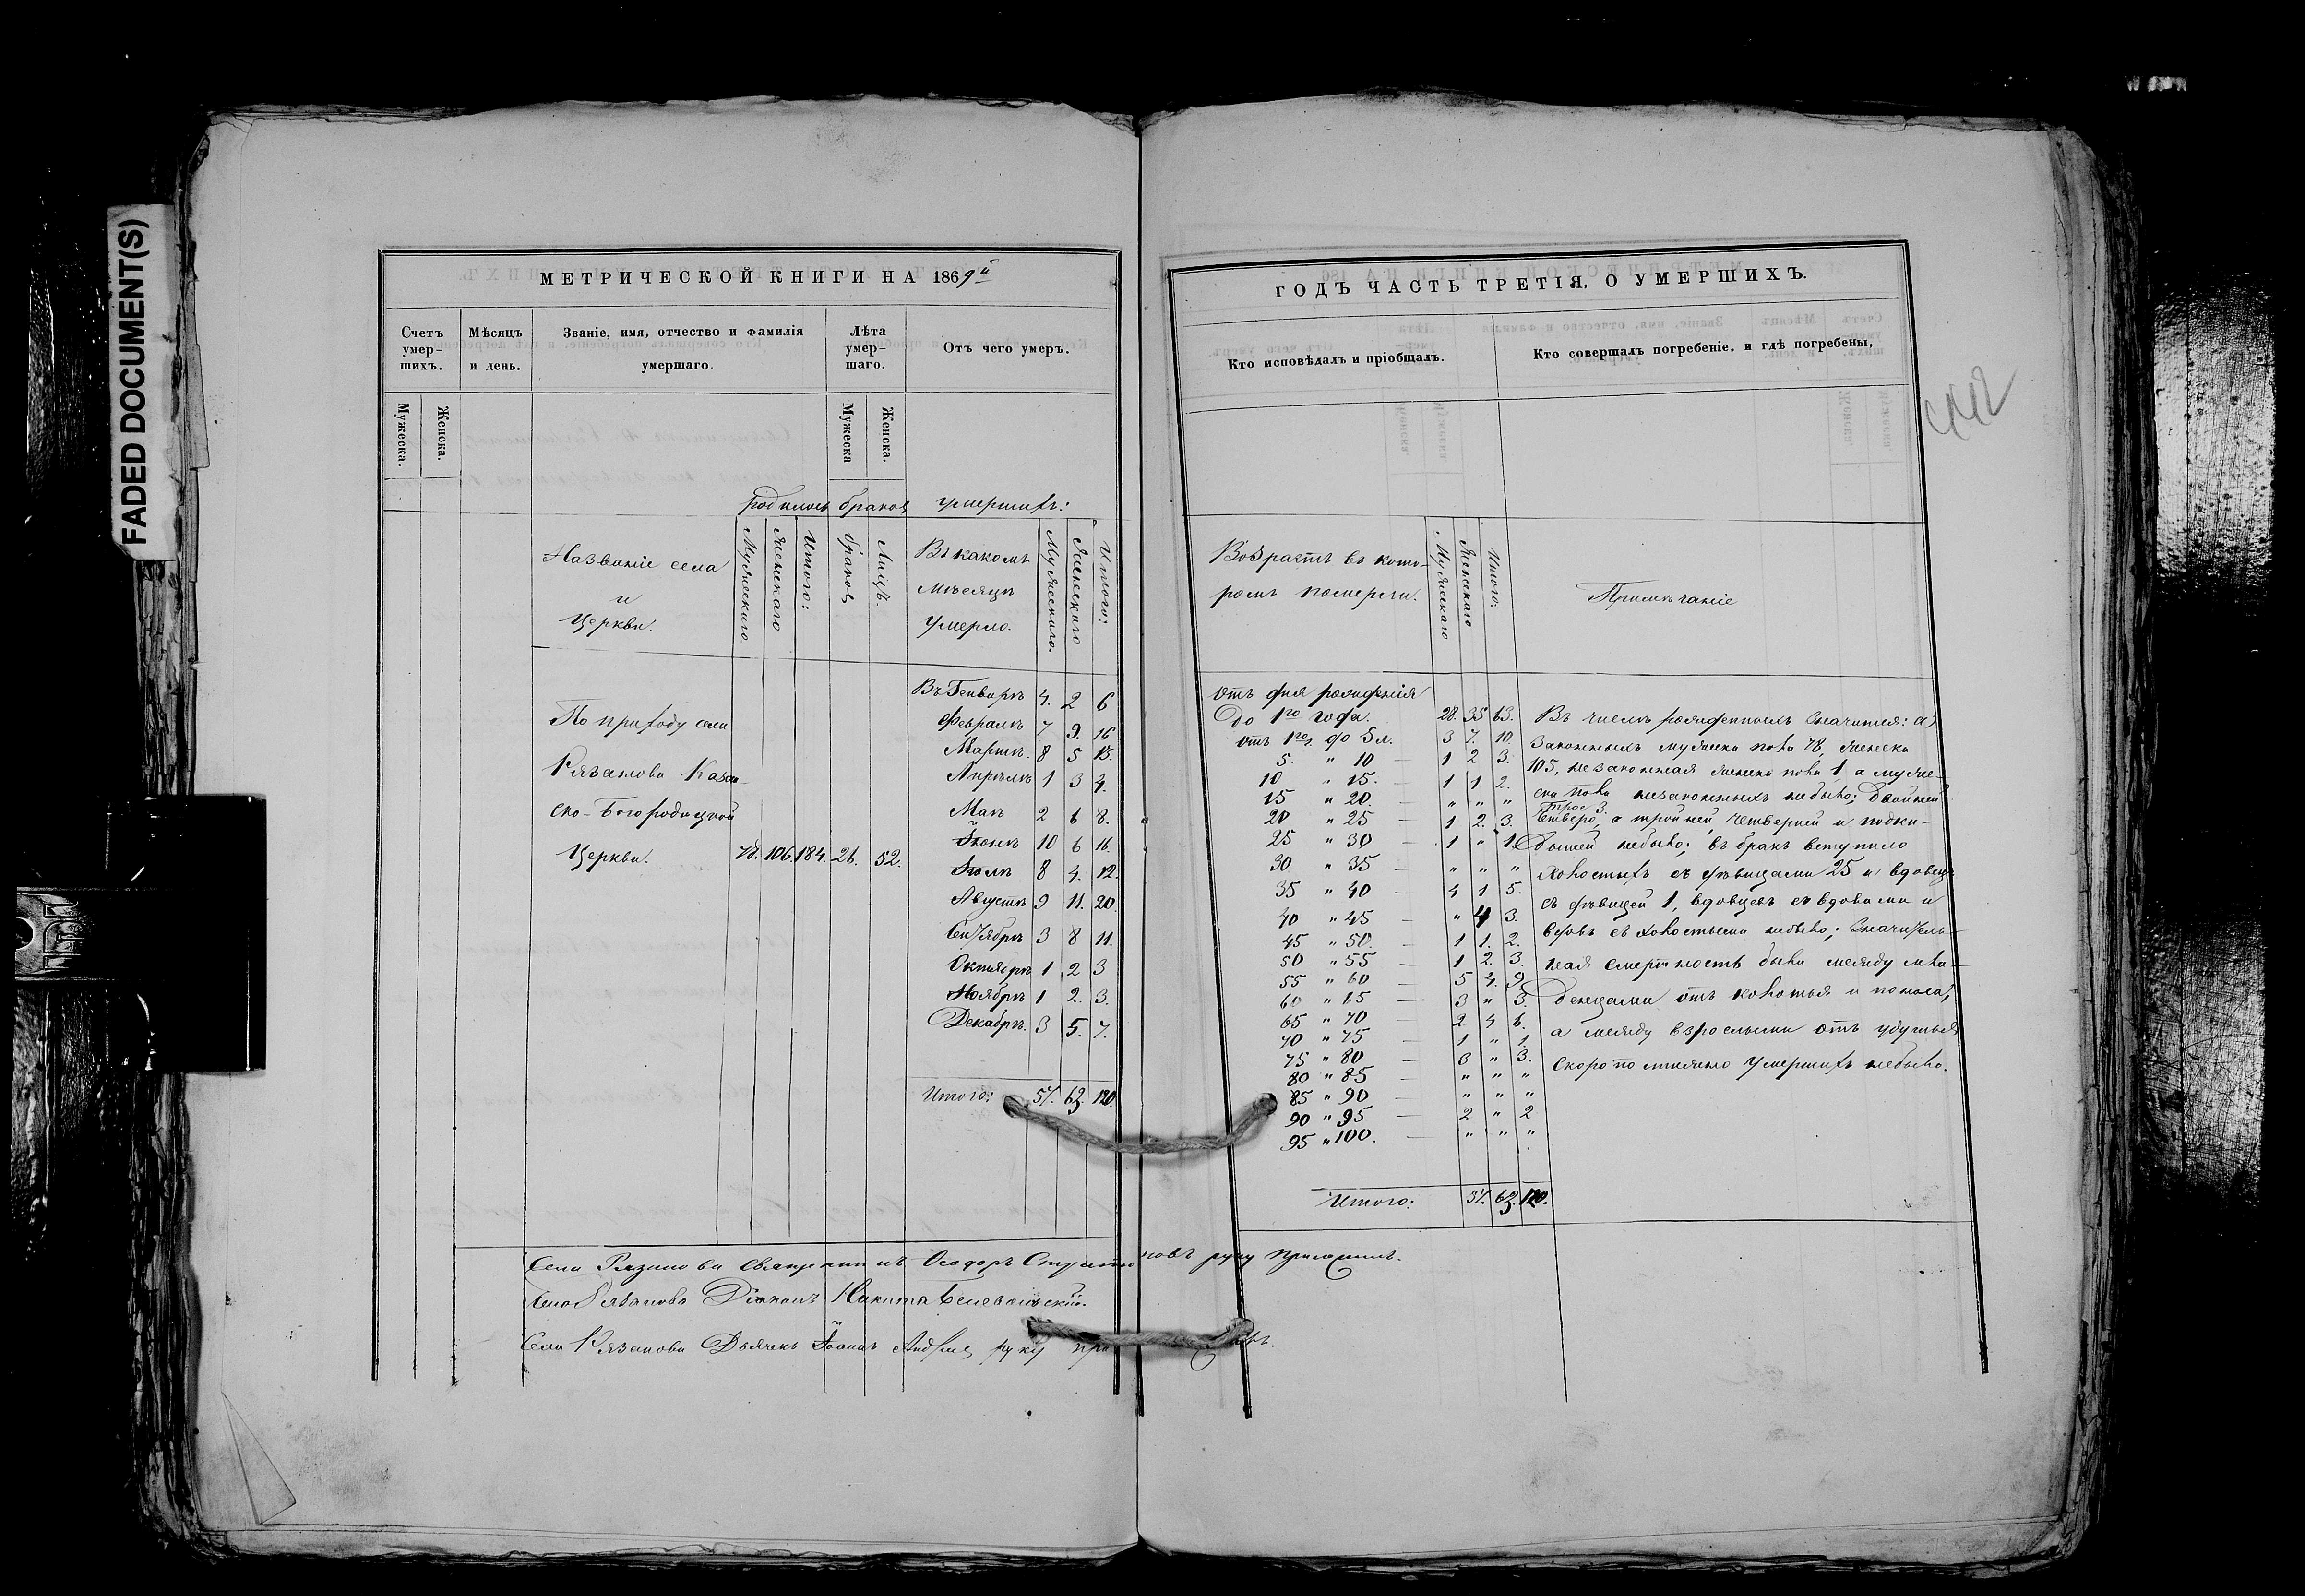 FADED DOCUMENT(S)
МЕТРИЧЕСКОЙ КНИГИ НА 1869й
Счетъ умер-шихъ.
Мѣсяцъ и день.
Званіе, имя, отчество и фамилія умершаго.
Лѣта умер-шаго.
Отъ чего умеръ.
Мужеска.
Женска.
Мужеска
Женска.
родилось браковъ умершихъ:
Названіе села
и
Церкви.
Мужескаго
Женскаго
Итого:
браковъ
Лицъ.
Въ какомъ
мѣсяцѣ
умерло.
Мужескаго.
Женскаго
Итого:
По приходу села
Рязанова Казан-
ско-Богородицкой
Церкви. 78. 106. 184. 26. 52.
Въ Генварѣ 4. 2 6
Февралѣ 7 9. 16
Мартѣ 8 5 13.
Апрѣлѣ 1 3 4.
Маѣ 2 6 8.
Іюнѣ 10 6 16.
Іюлѣ 8 4. 12.
Августѣ 9 11. 20.
Сентябрѣ 3 8 11.
Октябрѣ 1 2 3
Ноябрѣ 1 2. 3.
Декабрѣ. 3 5. 7.
Итого: 57. 63. 120.
ГОДЪ ЧАСТЬ ТРЕТІЯ, О УМЕРШИХЪ.
442
Кто исповѣдалъ и пріобщалъ.
Кто совершалъ погребеніе, и гдѣ погребены,
Возрастъ въ кото-
ромъ померли.
Мужескаго
Женскаго
Итого:
Примѣчаніе
отъ дня рожденія
до 1го года. 28. 35 63.
отъ 1го до 5 л. 3 7. 10.
5. " 10 — 1 2 3.
10 " 15. — 1 1 2.
15 " 20. — " " "
20 " 25 — 1 2. 3.
25 " 30 — 1 " 1.
30 " 35 — " " "
35 " 40 — 4 1 5.
40 " 45 — " 4 3.
45 " 50. — 1 1. 2.
50 " 55 — 1 2. 3.
55 " 60 — 5 4. 9.
60 " 65 — 3 " 3.
65 " 70 — 2 4 6.
70 " 75 — 1 " 1.
75 " 80 — 3 " 3.
80 " 85 — " " "
85 " 90 — " " "
90 " 95 — 2 " 2
95 " 100. — " " "
Итого: 57. 63. 120.
Въ числѣ рожденныхъ значится: а)
законныхъ мужеска пола 78, женска
105, незаконная женска пола 1, а муже-
ска пола незаконныхъ небыло; двойней
трое 3.
четверо, а тройней, четверней и подки-
дышей небыло; въ бракъ вступило
холостыхъ съ дѣвицами 25 и вдовецъ
съ дѣвицей 1, вдовцевъ съ вдовами и
вдовъ съ холостыми небыло; значитель-
ная смертность была между мла-
денцами отъ колотья и поноса,
а между взрослыми отъ удушья
скоропостижно умершихъ небыло.
Села Рязанова Священникъ Ѳеодоръ руку приложилъ.
Села Рязанова Діаконъ Никита
Села Рязанова Дьячекъ Іоаннъ руку